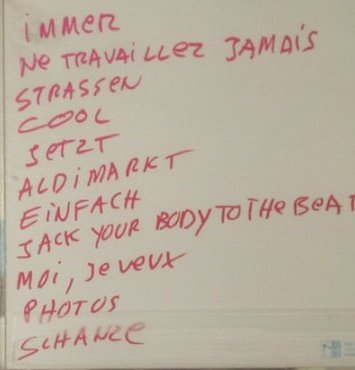 IMMER
NE TRAVAILLEZ JAMAIS
STRASSEN
COOL
JETZT
ALDIMARKT
EINFACH
JACK YOUR BODY TO THE BEAT
MOI, JE VEUX
PHOTOS
SCHANZE